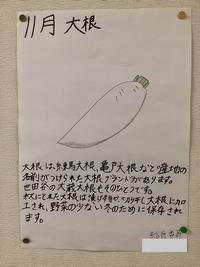 11月 大根
大根は、練馬大根、亀戸大根など産地の
名前がつけられた大根ブランドがあります。
世田谷の大蔵大根もそのひとつです。
大根は漬け物や 大根に加
工され、野菜の少ない冬のために保存され
ます。